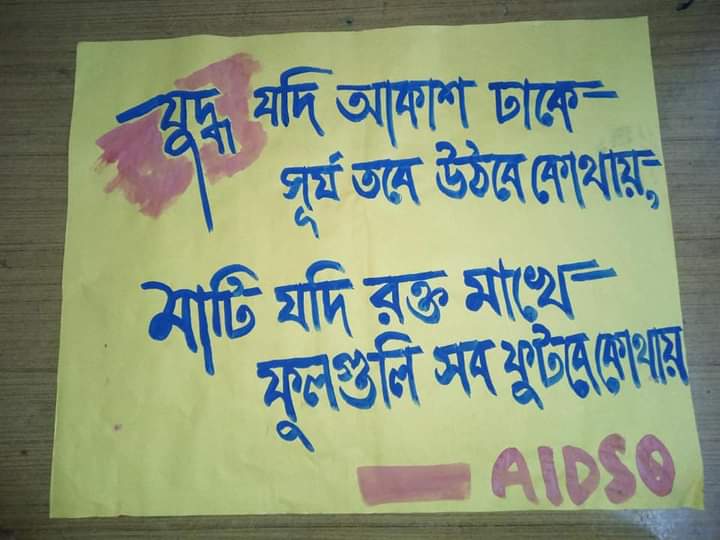 যুদ্ধ যদি আকাশ ঢাকে–
সূর্য তবে উঠবে কোথায়,
মাটি যদি রক্ত মাখে–
ফুলগুলি সব ফুটবে কোথায়
— AIDSO